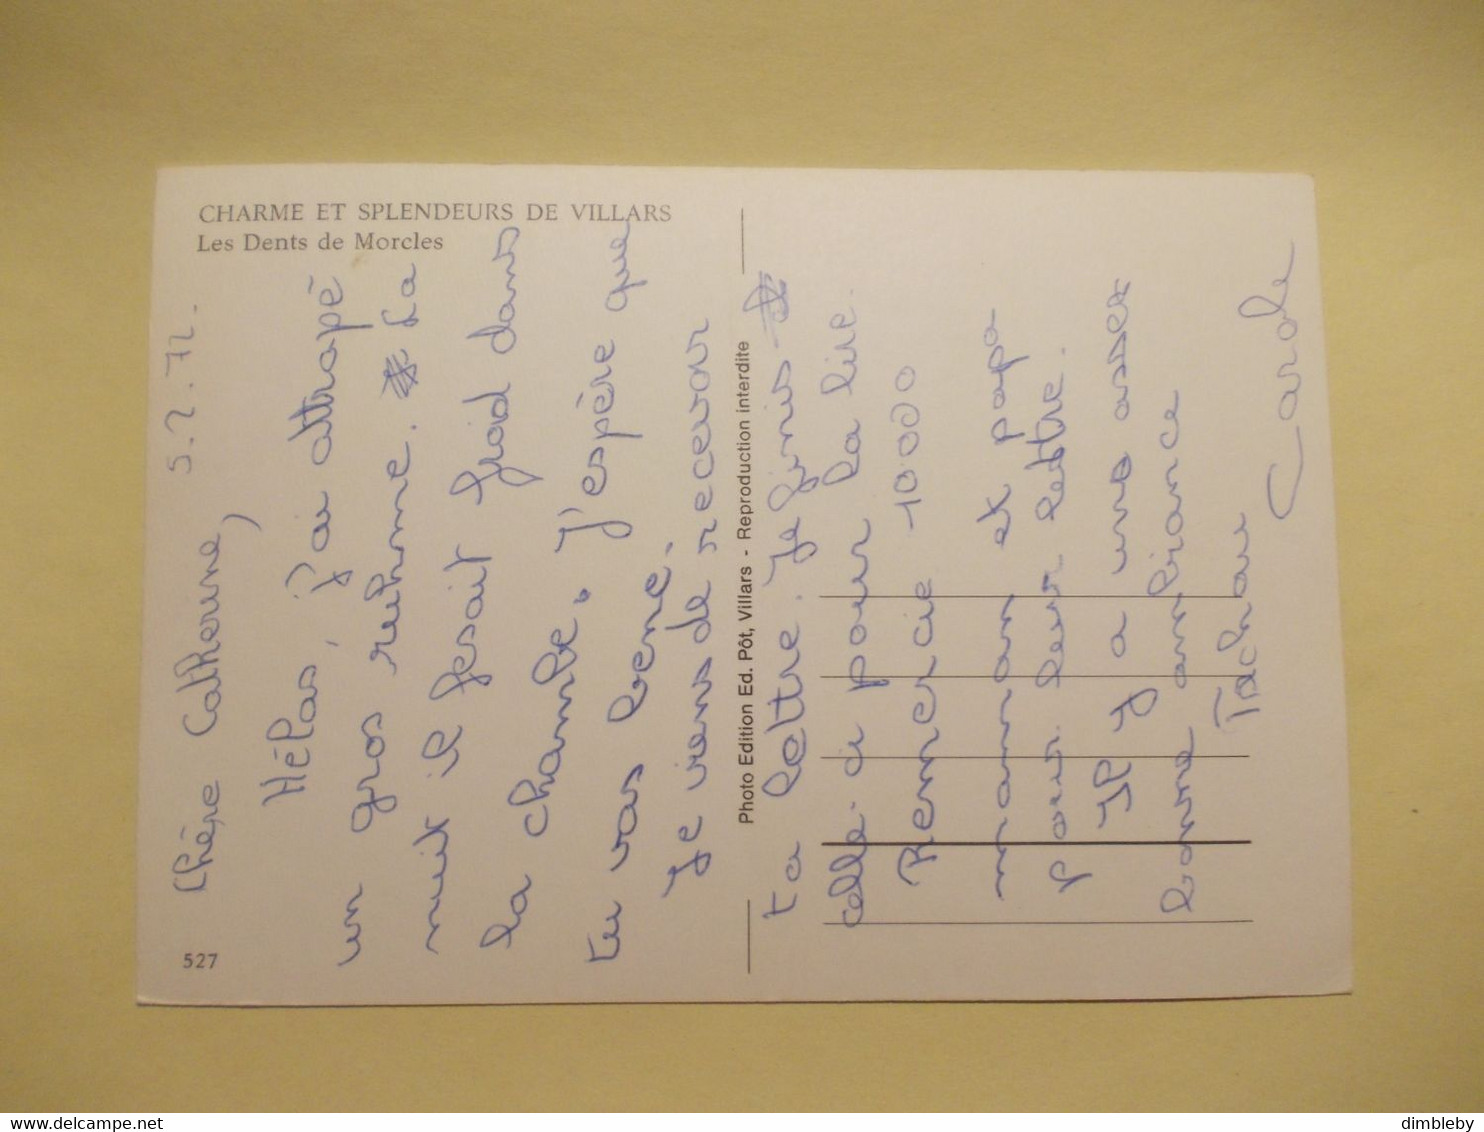 CHARME ET SPLENDEURS DE VILLARS
Les Dents de Morcles
527
Photo Edition Ed. Pôt, Villars - Reproduction interdite
5.2.72.
Chère Catherine,
Hélas, j'ai attrapé
un gros ruhme. La
nuit il fesait froid dans
la chambre. J'espère que
tu vas bene.
Je viens de recevoir
ta lettre. Je finis
celle-ci pour la lire.
Remercie 10000
maman et papa
pour leur lettre.
Il y a une assez
bonne ambiance
Tachau
Carole
dimbleby